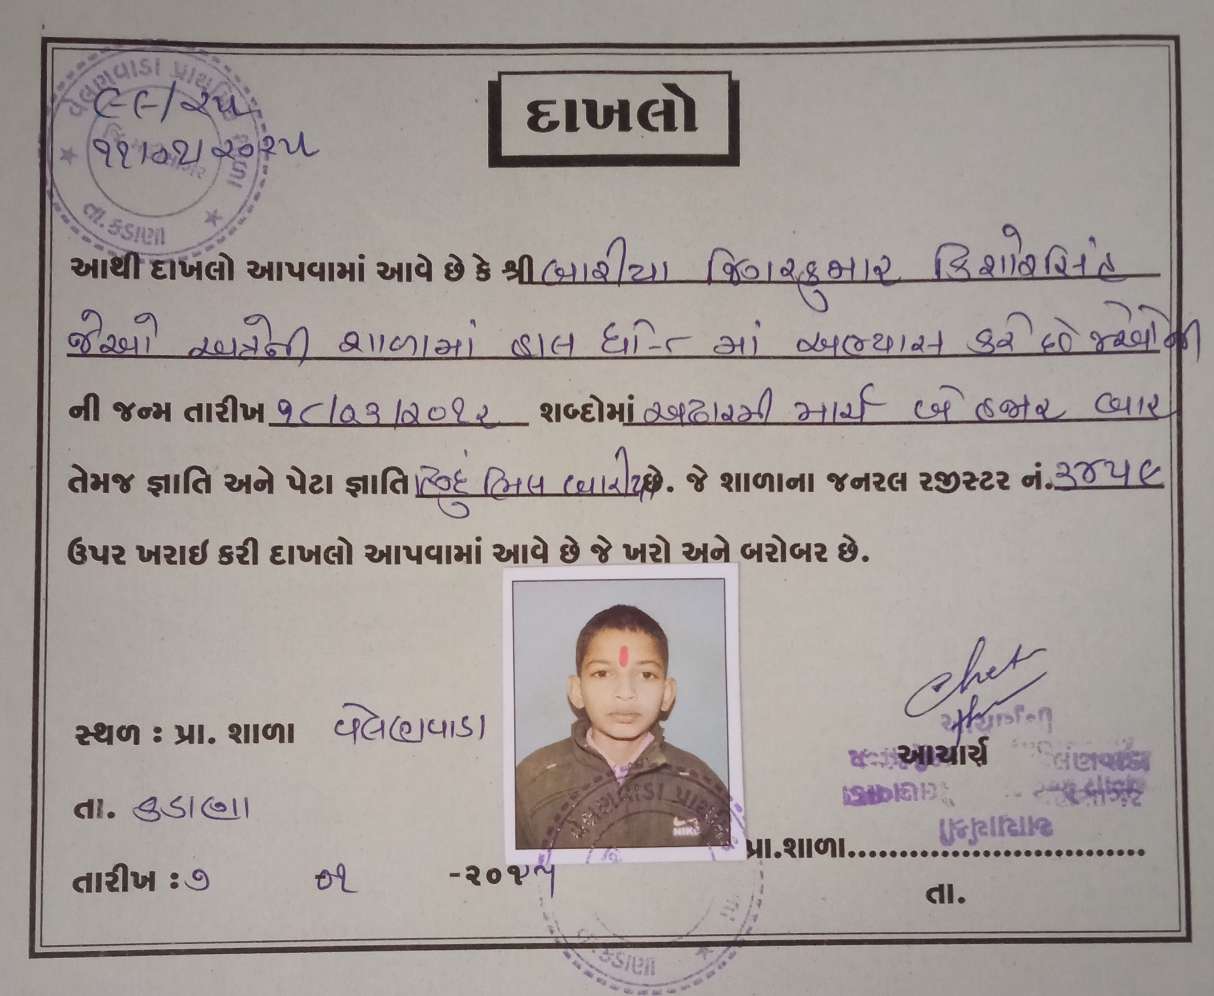 વેલણવાડા પ્રાથમિક શાળા
તા. કડાણા
૯૯/૨૫
દાખલો
આથી દાખલો આપવામાં આવે છે કે શ્રી બારીયા જિગરકુમાર કિશોરસિંહ
જેઓ અત્રેની શાળામાં હાલ ધો-૮ માં અભ્યાસ કરે છે જેઓની
ની જન્મ તારીખ ૧૮/૦૩/૨૦૧૨ શબ્દોમાં અઢારમી માર્ચ બે હજાર બાર
તેમજ જ્ઞાતિ અને પેટા જ્ઞાતિ હિન્દુ ભિલ બારીયા છે. જે શાળાના જનરલ રજીસ્ટર નં. ૩૪૫૯
ઉપર ખરાઇ કરી દાખલો આપવામાં આવે છે જે ખરો અને બરોબર છે.
સ્થળ : પ્રા. શાળા વેલણવાડા
આચાર્ય
તા. કડાણા
NIKE
પ્રા.શાળા..............................
તારીખ : ૭ ૦૧ -૨૦૨૫
તા.
વેલણવાડા પ્રાથમિક
તા. કડાણા